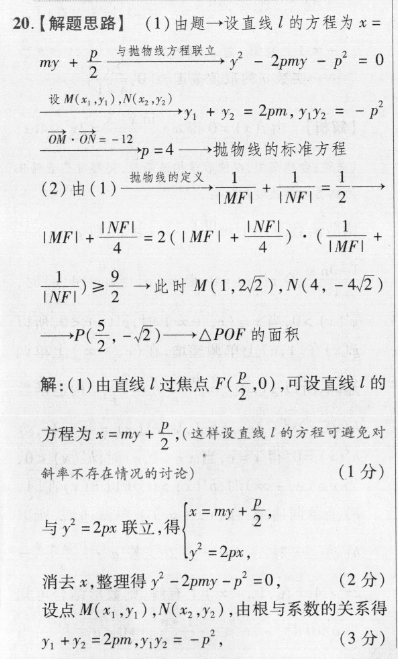 20.【解题思路】 (1)由题→设直线 l 的方程为 x =
my + p/2 —与抛物线方程联立→ y² - 2pmy - p² = 0
—设 M(x₁,y₁),N(x₂,y₂)→ y₁ + y₂ = 2pm, y₁y₂ = - p²
—OM→·ON→ = -12→ p = 4 ——→抛物线的标准方程
(2)由(1) —抛物线的定义→ 1/|MF| + 1/|NF| = 1/2 ——→
|MF| + |NF|/4 = 2(|MF| + |NF|/4)·(1/|MF| +
1/|NF|) ≥ 9/2 →此时 M(1,2√2),N(4, -4√2)
——→P(5/2, -√2)——→△POF 的面积
解:(1)由直线 l 过焦点 F(p/2,0),可设直线 l 的
方程为 x = my + p/2,(这样设直线 l 的方程可避免对
斜率不存在情况的讨论) (1 分)
与 y² = 2px 联立,得{x = my + p/2, y² = 2px,
消去 x,整理得 y² - 2pmy - p² = 0, (2 分)
设点 M(x₁,y₁),N(x₂,y₂),由根与系数的关系得
y₁ + y₂ = 2pm, y₁y₂ = - p², (3 分)